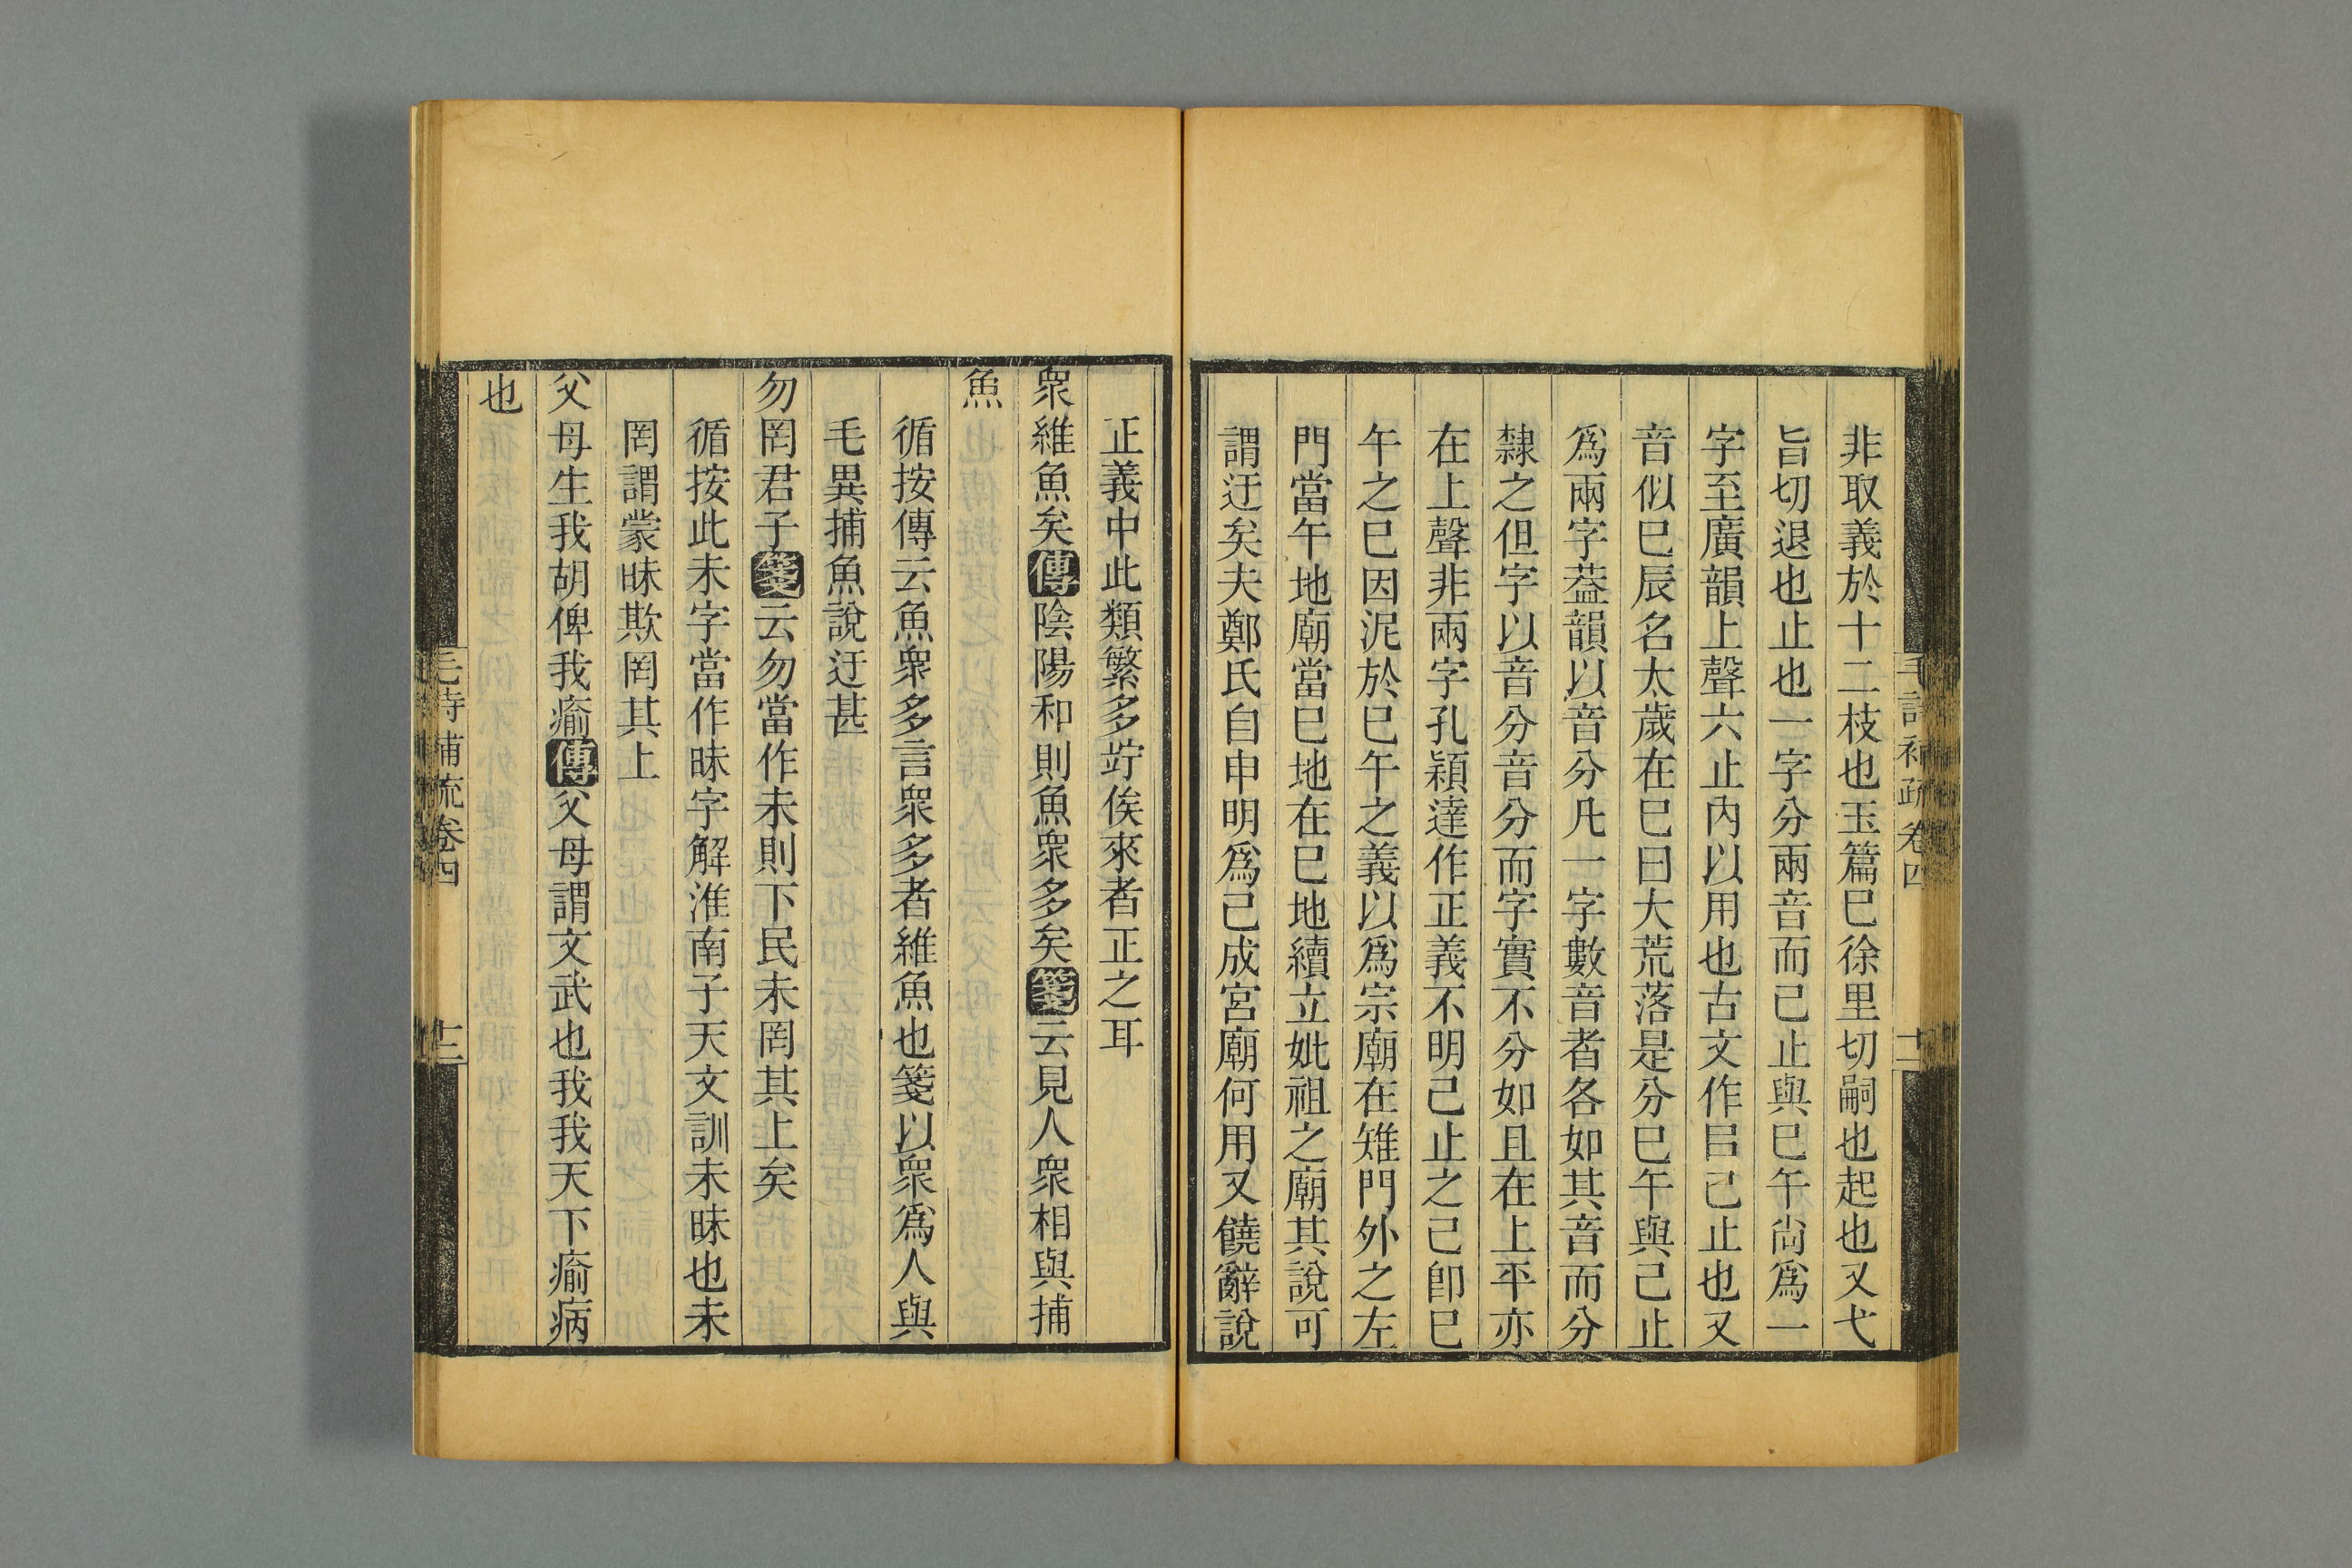 毛詩補疏卷四
十二
非取義於十二枝也玉篇巳徐里切嗣也起也又弋
旨切退也止也一字分兩音而己止與巳午尚爲一
字至廣韻上聲六止內以用也古文作㠯己止也又
音似巳辰名太歲在巳曰大荒落是分巳午與己止
爲兩字葢韻以音分凡一字數音者各如其音而分
隸之但字以音分音分而字實不分如且在上平亦
在上聲非兩字孔穎達作正義不明己止之己卽巳
午之巳因泥於巳午之義以爲宗廟在雉門外之左
門當午地廟當巳地在巳地續立妣祖之廟其說可
謂迂矣夫鄭氏自申明爲己成宮廟何用又饒辭說
正義中此類繁多竚俟來者正之耳
衆維魚矣傳陰陽和則魚衆多矣箋云見人衆相與捕
魚
循按傳云魚衆多言衆多者維魚也箋以衆爲人與
毛異捕魚說迂甚
勿罔君子箋云勿當作末則下民末罔其上矣
循按此末字當作昧字解淮南子天文訓未昧也未
罔謂蒙昧欺罔其上
父母生我胡俾我瘉傳父母謂文武也我我天下瘉病
也
毛詩補疏卷四
十三